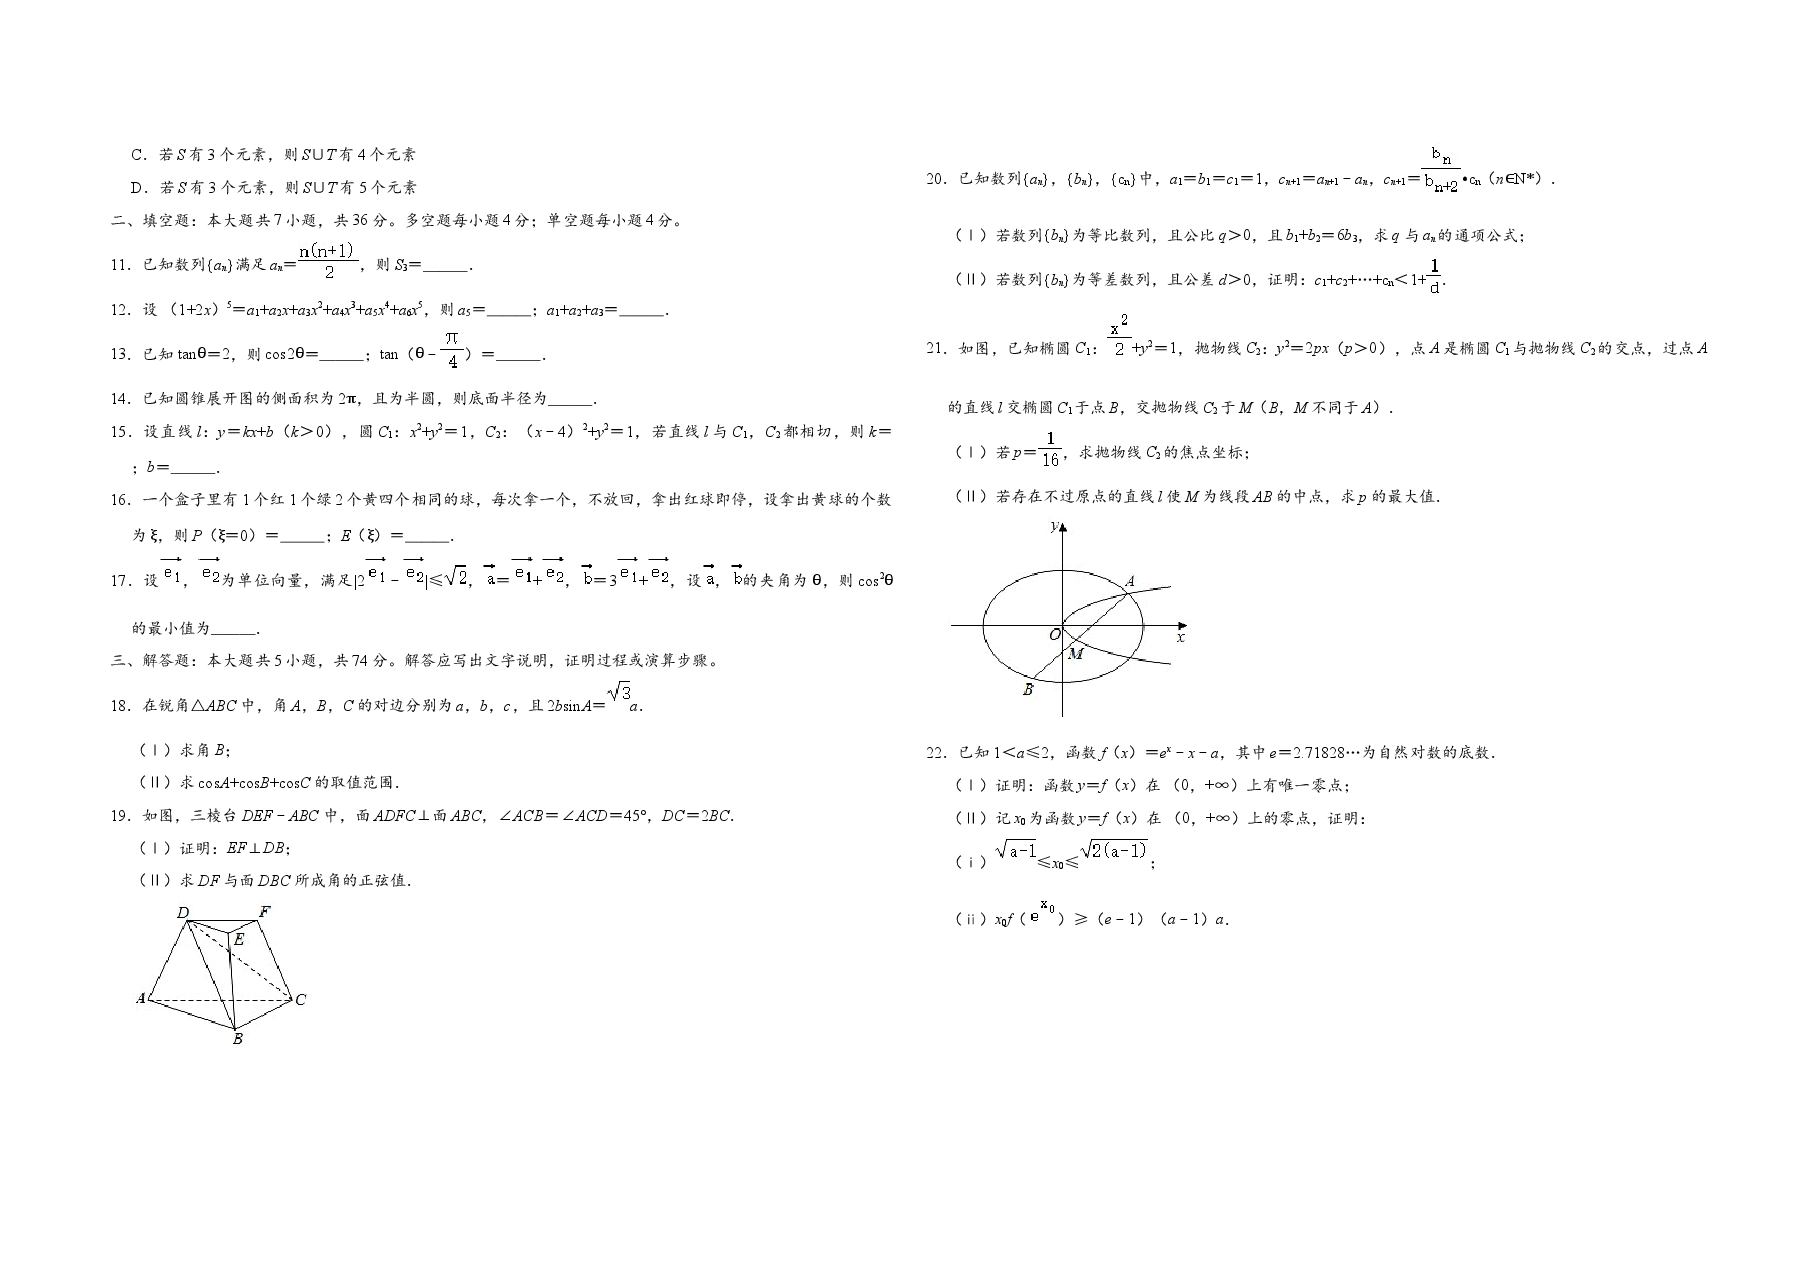 C．若S有3个元素，则S∪T有4个元素
D．若S有3个元素，则S∪T有5个元素
二、填空题：本大题共7小题，共36分。多空题每小题4分；单空题每小题4分。
11．已知数列{aₙ}满足aₙ＝n(n+1)/2，则S₃＝______．
12．设（1+2x）⁵＝a₁+a₂x+a₃x²+a₄x³+a₅x⁴+a₆x⁵，则a₅＝______；a₁+a₂+a₃＝______．
13．已知tanθ＝2，则cos2θ＝______；tan（θ﹣π/4）＝______．
14．已知圆锥展开图的侧面积为2π，且为半圆，则底面半径为______．
15．设直线l：y＝kx+b（k＞0），圆C₁：x²+y²＝1，C₂：（x﹣4）²+y²＝1，若直线l与C₁，C₂都相切，则k＝
；b＝______．
16．一个盒子里有1个红1个绿2个黄四个相同的球，每次拿一个，不放回，拿出红球即停，设拿出黄球的个数
为ξ，则P（ξ＝0）＝______；E（ξ）＝______．
17．设e₁→，e₂→为单位向量，满足|2e₁→﹣e₂→|≤√2，a→＝e₁→+e₂→，b→＝3e₁→+e₂→，设a→，b→的夹角为θ，则cos²θ
的最小值为______．
三、解答题：本大题共5小题，共74分。解答应写出文字说明，证明过程或演算步骤。
18．在锐角△ABC中，角A，B，C的对边分别为a，b，c，且2bsinA＝√3a．
（Ⅰ）求角B；
（Ⅱ）求cosA+cosB+cosC的取值范围．
19．如图，三棱台DEF﹣ABC中，面ADFC⊥面ABC，∠ACB＝∠ACD＝45°，DC＝2BC．
（Ⅰ）证明：EF⊥DB；
（Ⅱ）求DF与面DBC所成角的正弦值．
D
F
E
A
C
B
20．已知数列{aₙ}，{bₙ}，{cₙ}中，a₁＝b₁＝c₁＝1，cₙ₊₁＝aₙ₊₁﹣aₙ，cₙ₊₁＝bₙ/bₙ₊₂•cₙ（n∈N*）．
（Ⅰ）若数列{bₙ}为等比数列，且公比q＞0，且b₁+b₂＝6b₃，求q与aₙ的通项公式；
（Ⅱ）若数列{bₙ}为等差数列，且公差d＞0，证明：c₁+c₂+…+cₙ＜1+1/d．
21．如图，已知椭圆C₁：x²/2+y²＝1，抛物线C₂：y²＝2px（p＞0），点A是椭圆C₁与抛物线C₂的交点，过点A
的直线l交椭圆C₁于点B，交抛物线C₂于M（B，M不同于A）．
（Ⅰ）若p＝1/16，求抛物线C₂的焦点坐标；
（Ⅱ）若存在不过原点的直线l使M为线段AB的中点，求p的最大值．
y
A
O
x
M
B
22．已知1＜a≤2，函数f（x）＝eˣ﹣x﹣a，其中e＝2.71828…为自然对数的底数．
（Ⅰ）证明：函数y＝f（x）在（0，+∞）上有唯一零点；
（Ⅱ）记x₀为函数y＝f（x）在（0，+∞）上的零点，证明：
（ⅰ）√(a-1)≤x₀≤√(2(a-1))；
（ⅱ）x₀f（e^x₀）≥（e﹣1）（a﹣1）a．